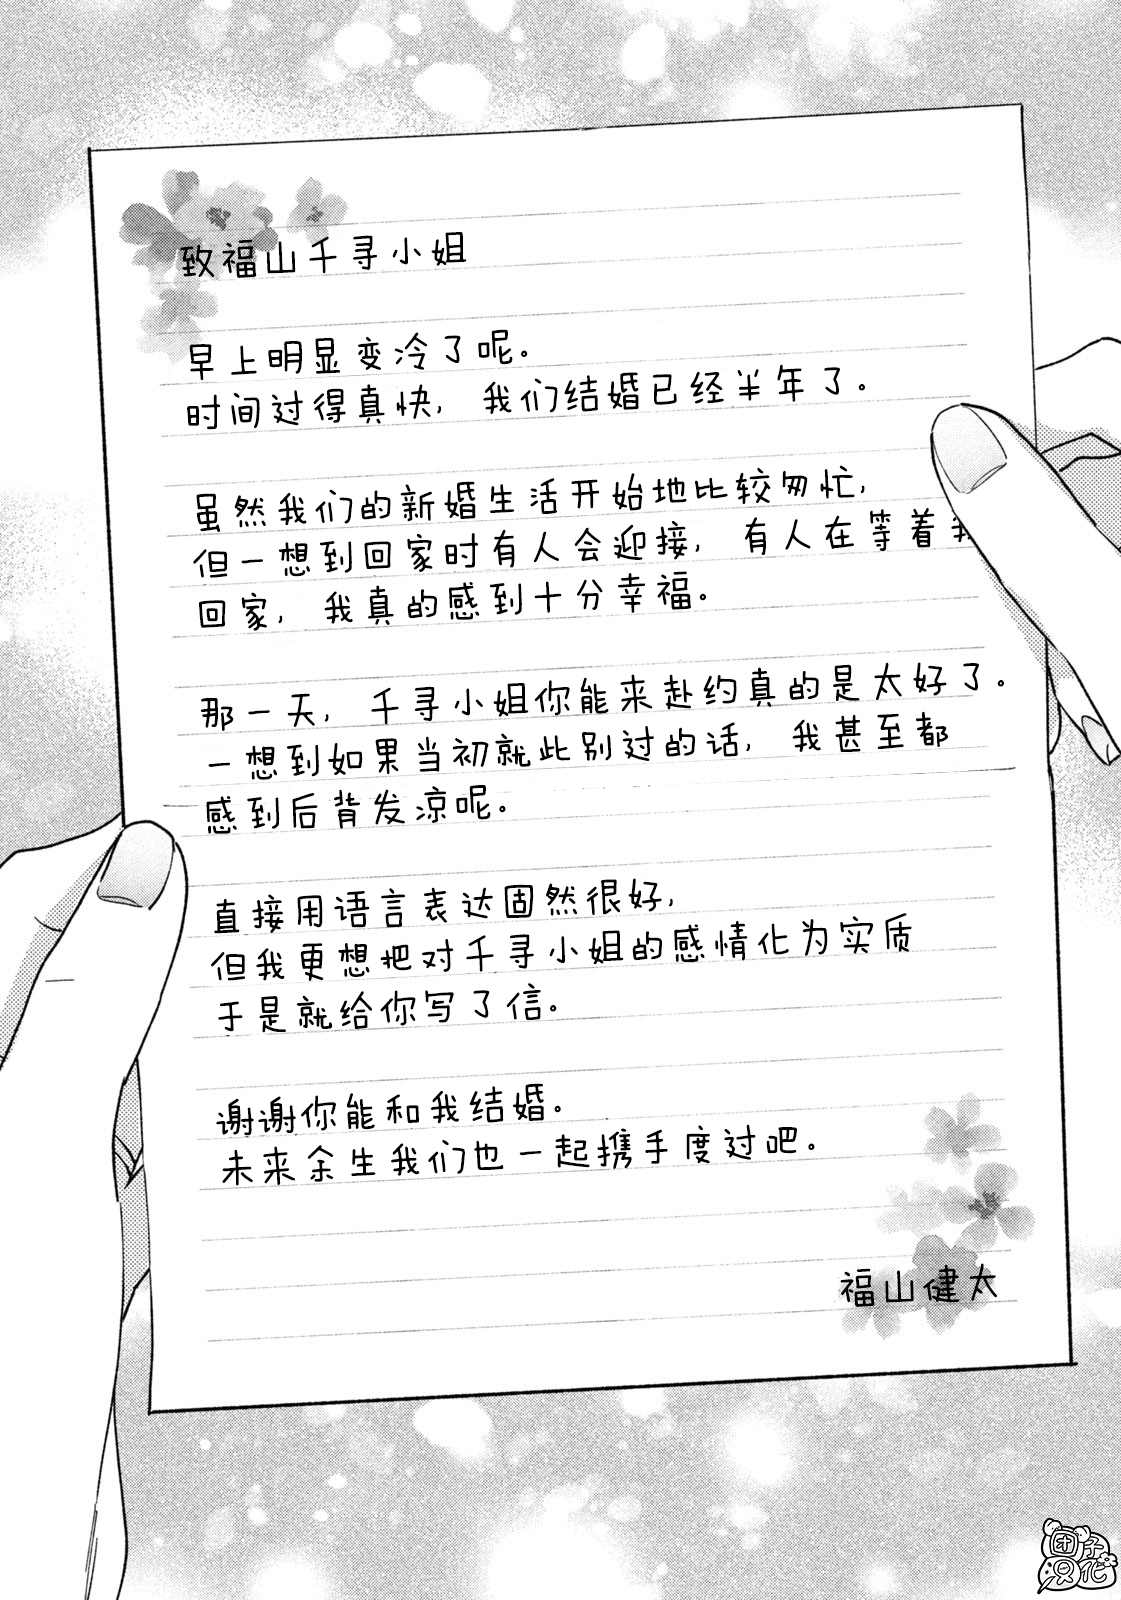 致福山千寻小姐
早上明显变冷了呢。
时间过得真快，我们结婚已经半年了。
虽然我们的新婚生活开始地比较匆忙，
但一想到回家时有人会迎接，有人在等着我
回家，我真的感到十分幸福。
那一天，千寻小姐你能来赴约真的是太好了。
一想到如果当初就此别过的话，我甚至都
感到后背发凉呢。
直接用语言表达固然很好，
但我更想把对千寻小姐的感情化为实质
于是就给你写了信。
谢谢你能和我结婚。
未来余生我们也一起携手度过吧。
福山健太
团子
汉化